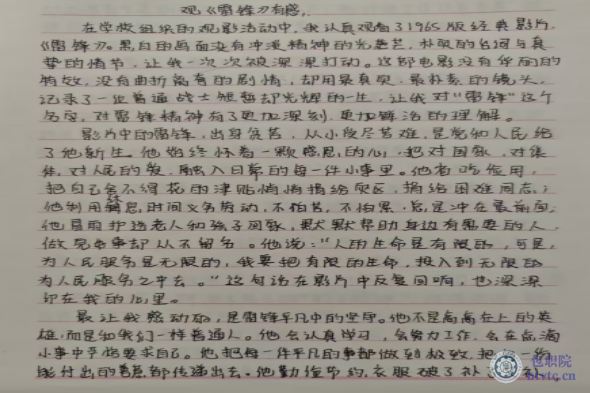 观《雷锋》有感
在学校组织的观影活动中，我认真观看了1965版经典影片
《雷锋》。黑白的画面没有冲淡精神的光芒，朴素的台词与真
挚的情节，让我一次次被深深打动。这部电影没有华丽的
特效，没有曲折离奇的剧情，却用最真实、最朴素的镜头，
记录了一位普通战士短暂却光辉的一生，让我对“雷锋”这个
名字，对雷锋精神有了更加深刻、更加鲜活的理解。
影片中的雷锋，出身贫苦，从小受尽苦难，是党和人民给
了他新生。他始终怀着一颗感恩的心，把对国家、对集
体、对人民的爱，融入日常的每一件小事里。他省吃俭用，
把自己舍不得花的津贴悄悄捐给灾区，捐给困难同志；
他利用休息时间义务劳动，不怕苦、不怕累，总是冲在最前面；
他冒雨护送老人和孩子回家，默默帮助身边有需要的人，
做完好事却从不留名。他说：“人的生命是有限的，可是，
为人民服务是无限的，我要把有限的生命，投入到无限的
为人民服务之中去。”这句话在影片中反复回响，也深深
印在我的心里。
最让我感动的，是雷锋平凡中的坚守。他不是高高在上的英
雄，而是和我们一样普通人。他会认真学习，会努力工作，会在点滴
小事中严格要求自己。他把每一件平凡的事都做到极致，把一份
份付出的善意都传递出去。他勤俭节约，衣服破了补了
包职院
btvtc.cn